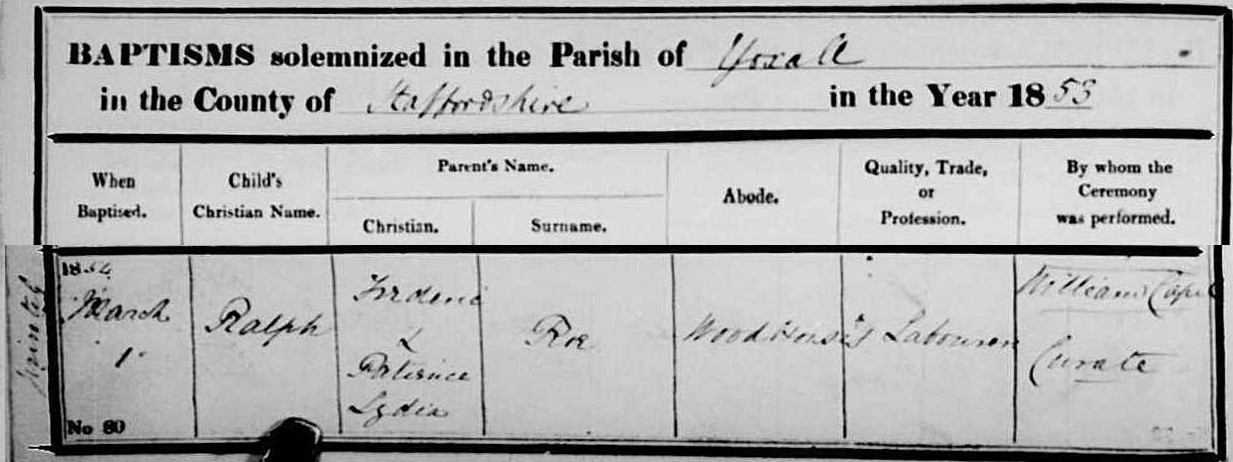 BAPTISMS solemnized in the Parish of Yoxall
in the County of Staffordshire in the Year 1853
Parent's Name.
When
Baptised.
Child's
Christian Name.
Christian.
Surname.
Abode.
Quality, Trade,
or
Profession.
By whom the
Ceremony
was performed.
1854
March
1
No 80
Ralph
Frederic
&
Patience
Lydia
Roe
Woodhouses
Labourer
William Capel
Curate